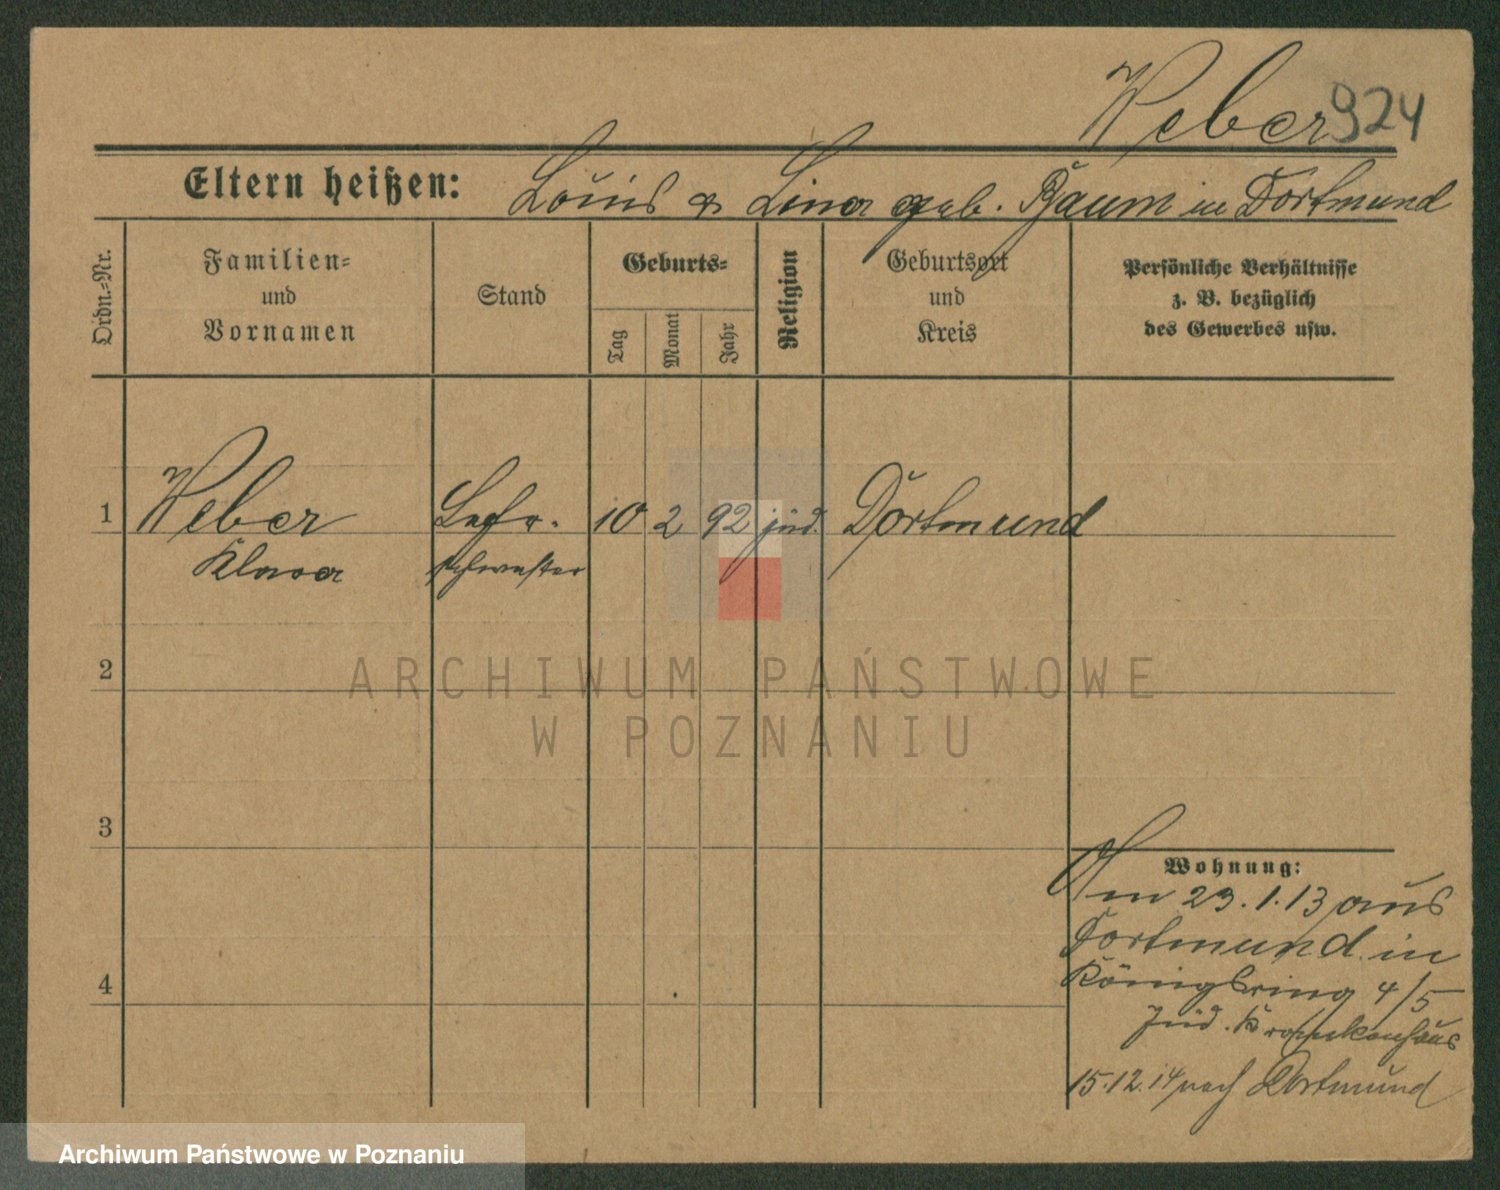 Weber 924
Eltern heißen: Louis & Lina geb. Baum in Dortmund
Ordn.-Nr.
Familien-
und
Vornamen
Stand
Geburts-
Tag
Monat
Jahr
Religion
Geburtsort
und
Kreis
Persönliche Verhältnisse
z. B. bezüglich
des Gewerbes usw.
1 Weber Lehr- 10 2 92 jüd. Dortmund
Klara schwester
2
3
4
Wohnung:
Am 23.1.13 aus
Dortmund in
Königsring 4/5
Jüd. Krankenhaus
15.12.14 nach Dortmund
ARCHIWUM PAŃSTWOWE
W POZNANIU
Archiwum Państwowe w Poznaniu